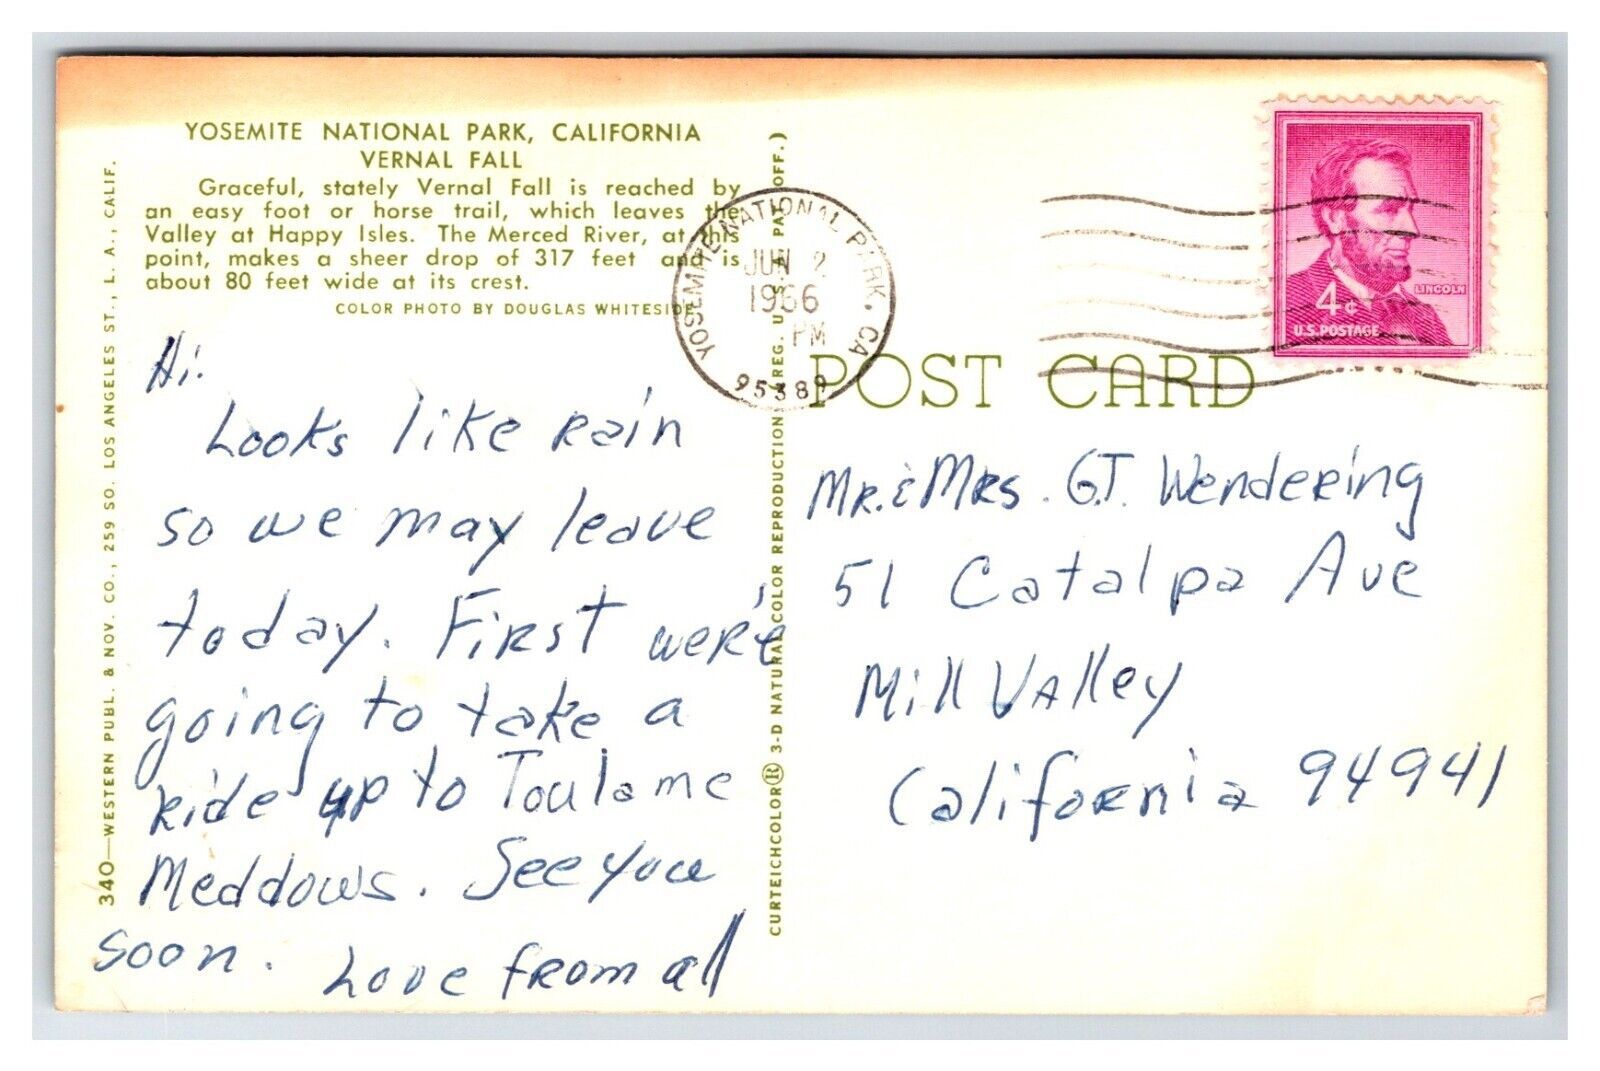 YOSEMITE NATIONAL PARK, CALIFORNIA
VERNAL FALL
Graceful, stately Vernal Fall is reached by
an easy foot or horse trail, which leaves the
Valley at Happy Isles. The Merced River, at this
point, makes a sheer drop of 317 feet and is
about 80 feet wide at its crest.
COLOR PHOTO BY DOUGLAS WHITESIDE
Hi.
Looks like rain
so we may leave
today. First we're
going to take a
ride up to Toulome
Meddows. See you
soon. Love from all
340—WESTERN PUBL. & NOV. CO., 259 SO. LOS ANGELES ST., L. A., CALIF.
CURTEICHCOLOR® 3-D NATURAL COLOR REPRODUCTION (REG. U.S.A. PAT. OFF.)
YOSEMITE NATIONAL PARK, CA
JUN 2
1966
PM
95389
4¢
LINCOLN
U.S. POSTAGE
POST CARD
Mr. & Mrs. G.T. Wendering
51 Catalpa Ave
Mill Valley
California 94941